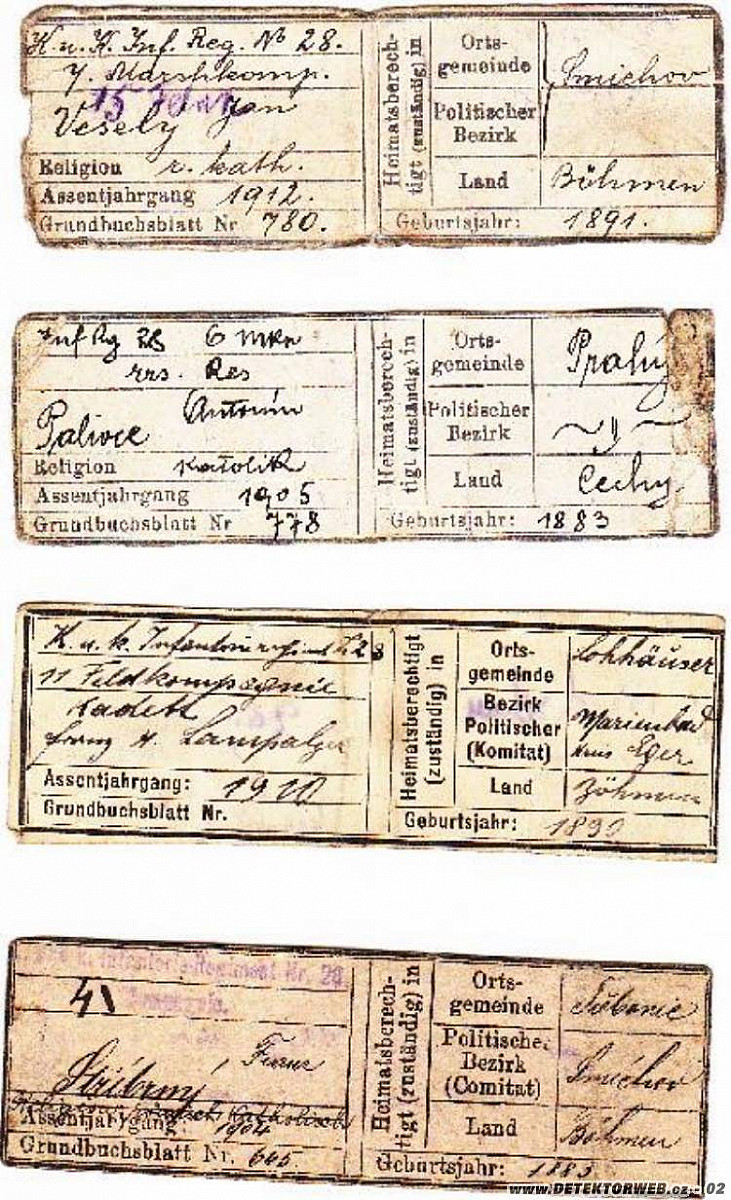 K. u. K. Inf. Reg. № 28.
7. Marshkomp.
15
Vesely Jan
Religion r. kath.
Assentjahrgang 1912.
Grundbuchsblatt Nr 780.
Heimatsberech-
tigt (zuständig) in
Orts-
gemeinde Smichov
Politischer
Bezirk
Land Böhmen
Geburtsjahr: 1891.
Inf Rg 28 6
Res
Antonín
Religion katolik
Assentjahrgang 1905
Grundbuchsblatt Nr 778
Heimatsberech-
tigt (zuständig) in
Orts-
gemeinde
Politischer
Bezirk — " —
Land Cechy
Geburtsjahr: 1883
K. u. k. 28
11 Feldkompagnie
Kadett
Franz
Assentjahrgang: 1910
Grundbuchsblatt Nr.
Heimatsberechtigt
(zuständig) in
Orts-
gemeinde Lohhäuser
Bezirk
Politischer
(Komitat) Marienbad
Kreis Eger
Land Böhmen
Geburtsjahr: 1890
k. Infanterie-Regiment Nr. 28.
Stribrný
Katholisch
Assentjahrgang: 1904
Grundbuchsblatt Nr. 645
Heimatsberech-
tigt (zuständig) in
Orts-
gemeinde
Politischer
Bezirk
(Comitat) Smichov
Land Böhmen
Geburtsjahr: 1883
www.DETEKTORWEB.cz - 02